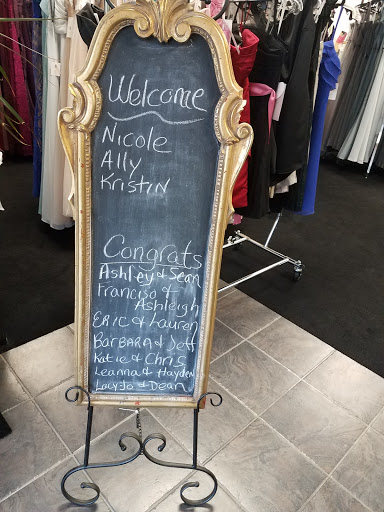 Welcome
Nicole
Ally
Kristin
Congrats
Ashley & Sean
Franciso &
Ashleigh
Eric & Lauren
Barbara & Jeff
Katie & Chris
Leanna & Hayden
LacyJo & Dean